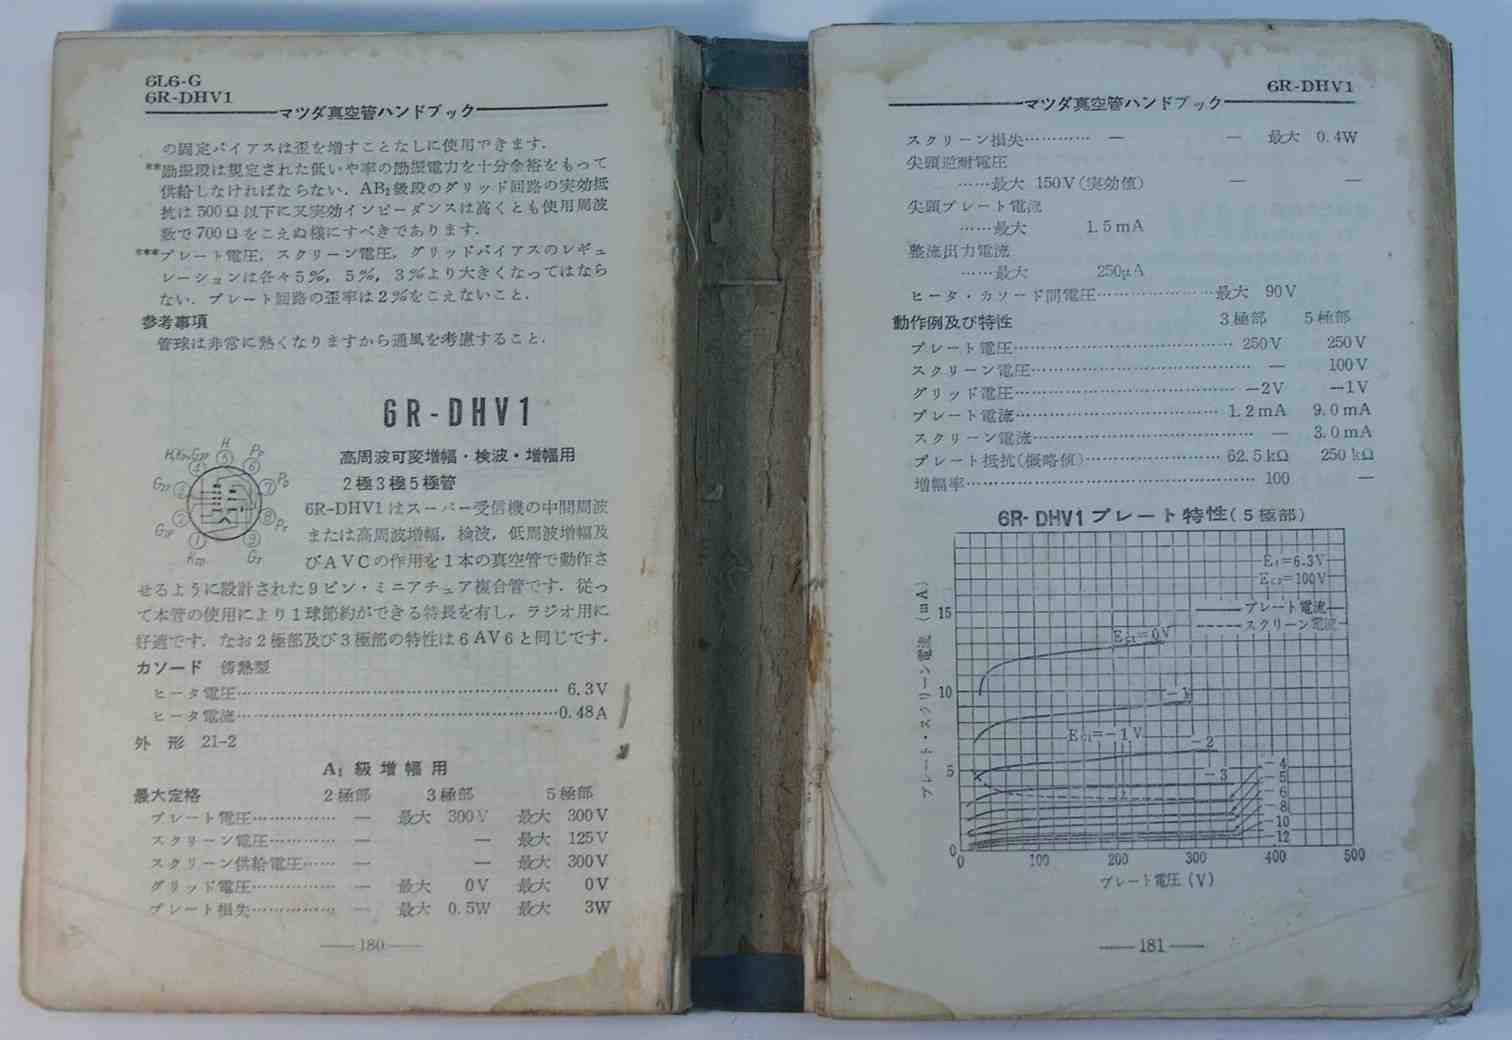 6L6-G
6R-DHV1
マツダ真空管ハンドブック
の固定バイアスは歪を増すことなしに使用できます．
**励振段は規定された低いや率の励振電力を十分余裕をもって
供給しなければならない．AB₁級段のグリッド回路の実効抵
抗は500Ω以下に又実効インピーダンスは高くとも使用周波
数で700Ωをこえぬ様にすべきであります．
***プレート電圧，スクリーン電圧，グリッドバイアスのレギュ
レーションは各々5％，5％，3％より大きくなってはなら
ない．プレート回路の歪率は2％をこえないこと．
参考事項
管球は非常に熱くなりますから通風を考慮すること．
6R-DHV1
高周波可変増幅・検波・増幅用
2極3極5極管
6R-DHV1はスーパー受信機の中間周波
または高周波増幅，検波，低周波増幅及
びAVCの作用を1本の真空管で動作さ
せるように設計された9ピン・ミニアチュア複合管です．従っ
て本管の使用により1球節約ができる特長を有し，ラジオ用に
好適です．なお2極部及び3極部の特性は6AV6と同じです．
カソード　傍熱型
ヒータ電圧……………………………………………… 6.3V
ヒータ電流………………………………………………0.48A
外　形　21-2
A₁ 級 増 幅 用
最大定格　2極部　3極部　5極部
プレート電圧…………… ―　最大　300V　最大　300V
スクリーン電圧………… ―　―　最大　125V
スクリーン供給電圧…… ―　―　最大　300V
グリッド電圧…………… ―　最大　0V　最大　0V
プレート損失…………… ―　最大　0.5W　最大　3W
―180―
6R-DHV1
マツダ真空管ハンドブック
スクリーン損失………… ―　―　最大　0.4W
尖頭逆耐電圧
……最大　150V(実効値)　―　―
尖頭プレート電流
……最大　1.5mA
整流出力電流
……最大　250μA
ヒータ・カソード間電圧…………………最大　90V
動作例及び特性　3極部　5極部
プレート電圧……………………………… 250V　250V
スクリーン電圧……………………………… ―　100V
グリッド電圧……………………………… －2V　－1V
プレート電流……………………………… 1.2mA　9.0mA
スクリーン電流……………………………… ―　3.0mA
プレート抵抗(概略値)………………… 62.5kΩ　250kΩ
増幅率………………………………………… 100　―
6R-DHV1プレート特性(5極部)
Ef=6.3V
Ec2=100V
プレート電流
スクリーン電流
Ec1=0V
-1
Ec1=-1V
-2
-3
-4
-5
-6
-8
-10
-12
15
10
5
0
プレート・スクリーン電流 (mA)
0 100 200 300 400 500
プレート電圧(V)
―181―